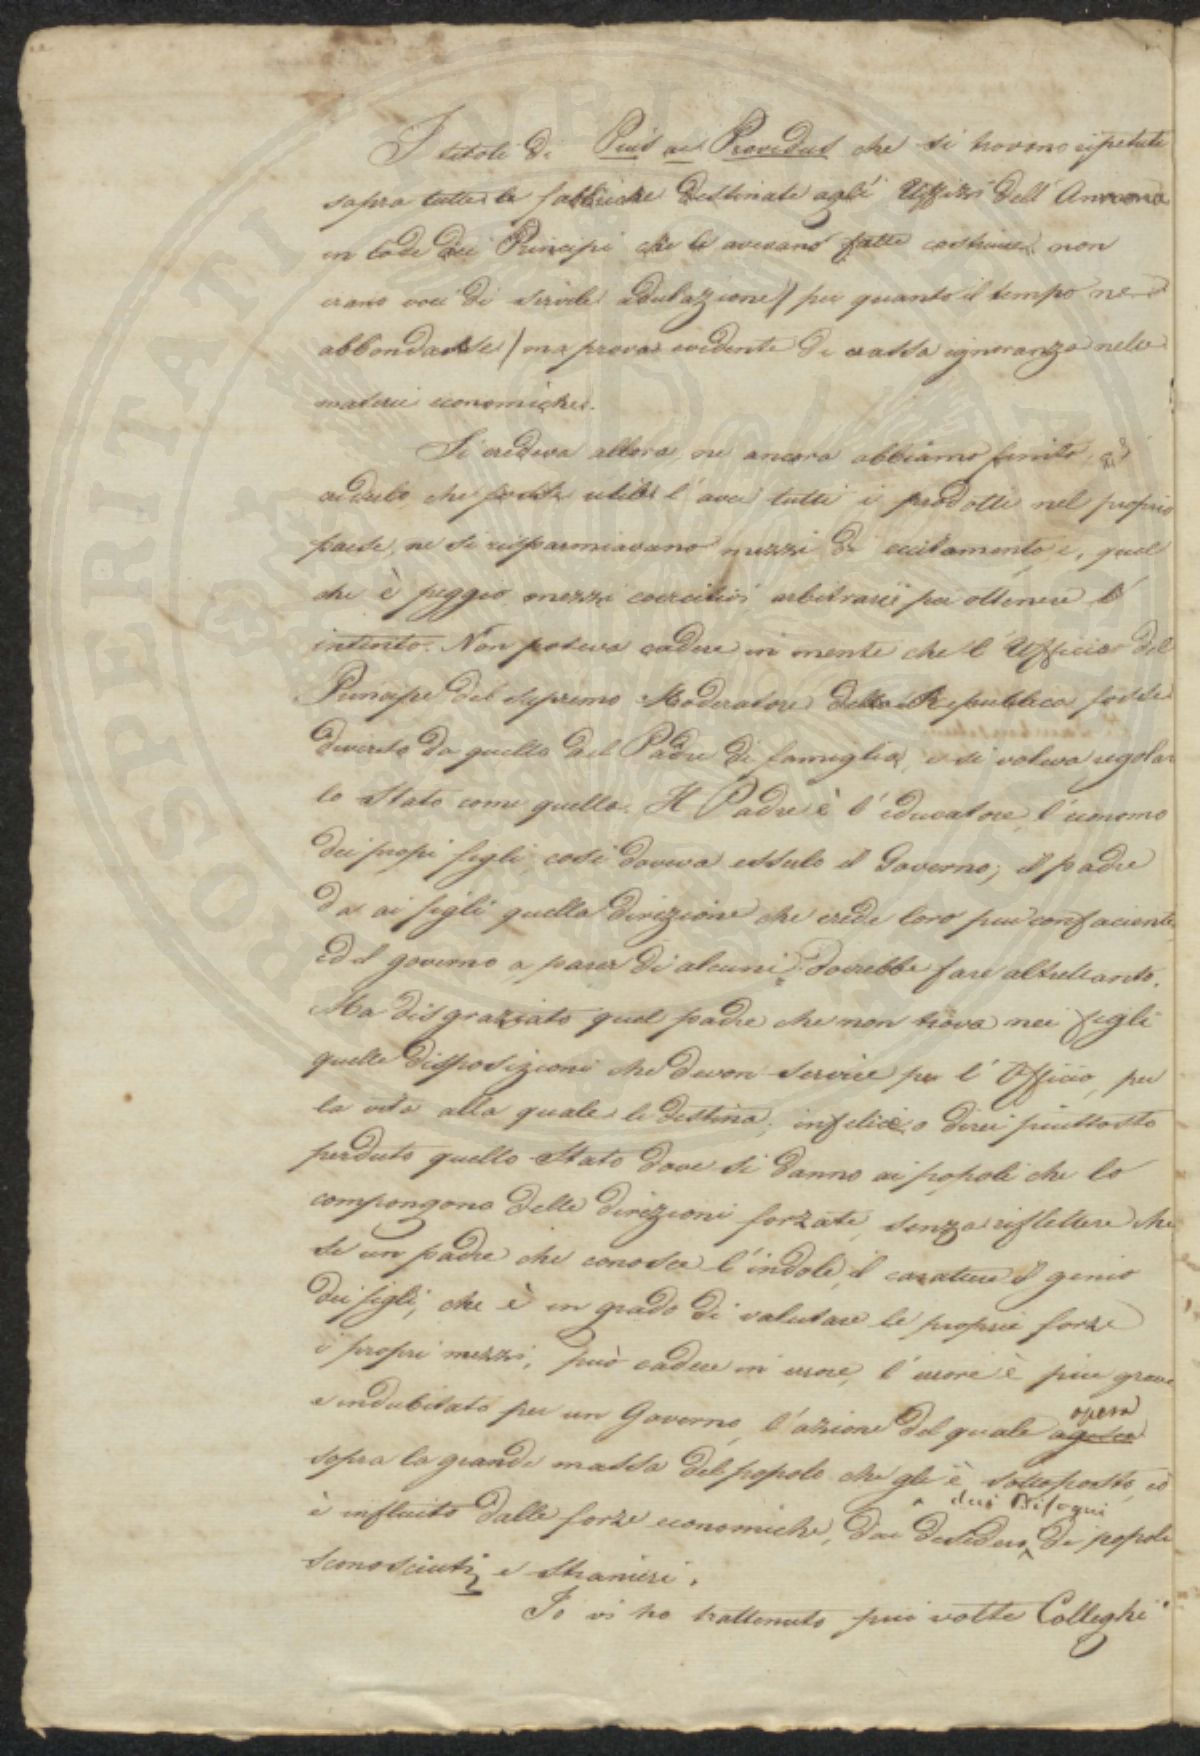 I titoli di Pius ac Providus che si trovano ripetuti
sopra tutte le fabbriche destinate agli Uffizzi dell'Annona
in lode dei Principi che le avevano fatte costruire, non
erano voci di servile adulazione / per quanto il tempo ne
abbondasse / ma prova evidente di crassa ignoranza nelle
materie economiche.
Si credeva allora, ne ancora abbiamo finito di
crederlo, che fosse utile l'aver tutti i prodotti nel proprio
paese, ne si risparmiavano mezzi di eccitamento e, quel
che è peggio mezzi coercitivi arbitrarii per ottenere l'
intento. Non poteva cadere in mente che l'Ufficio del
Principe del supremo Moderatore della Repubblica fosse
diverso da quello del Padre di famiglia, e si voleva regolar
lo Stato come quella. Il Padre è l'educatore, l'economo
dei propi figli, così doveva esserlo il Governo; il padre
da ai figli quella direzione che crede loro più confaciente
ed il governo a parer di alcuni dovrebbe fare altrettanto.
Ma disgraziato quel padre che non trova nei figli
quelle disposizioni che devon servire per l'Officio, per
la vita alla quale li destina; infelice, o direi piuttosto
perduto quello Stato dove si danno ai popoli che lo
compongono delle direzioni forzate, senza riflettere che
se un padre che conosce l'indole, il carattere il genio
dei figli, che è in grado di valutare le proprie forze
i propri mezzi, può cadere in errore, l'errore è più grave
e indubitato per un Governo, l'azione del quale agisce opera
sopra la grande massa del popolo che gli è sottoposto, ed
è influito dalle forze economiche, dai desideri dai bisogni di popoli
sconosciuti e stranieri.
Io vi ho trattenuto più volte Colleghi